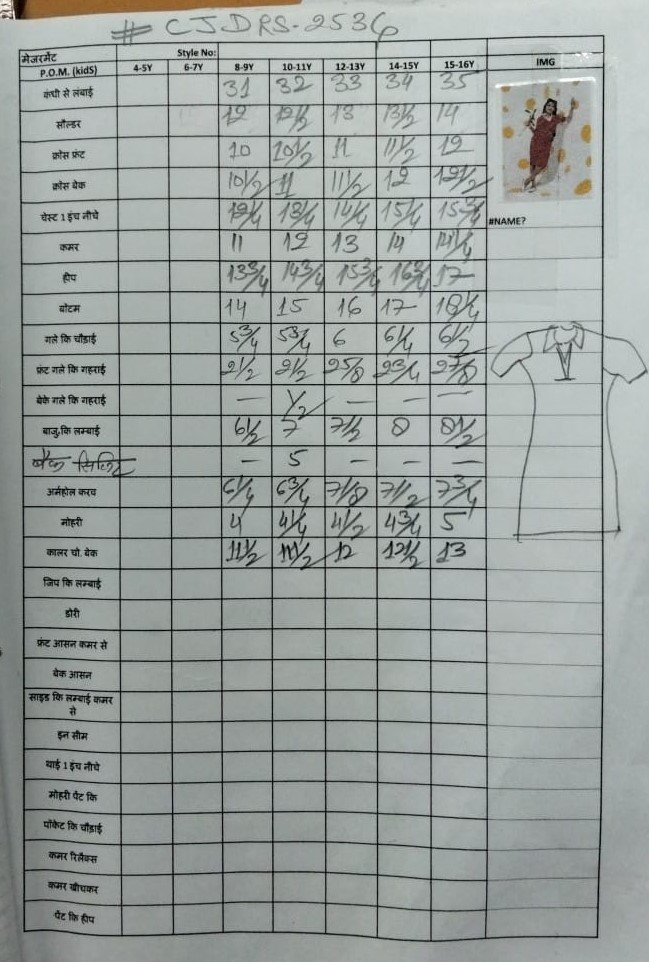 # CJDRS-2536
मेजरमेंट Style No:
P.O.M. (kidS) 4-5Y 6-7Y 8-9Y 10-11Y 12-13Y 14-15Y 15-16Y IMG
कंधी से लंबाई 31 32 33 34 35
सौल्डर 12 12½ 13 13½ 14
क्रोस फ्रंट 10 10½ 11 11½ 12
क्रोस बेक 10½ 11 11½ 12 12½
चेस्ट 1 इंच नीचे 12¼ 13¼ 14¼ 15¼ 15¾
#NAME?
कमर 11 12 13 14 14¼
हीप 13¾ 14¾ 15¾ 16¾ 17
बोटम 14 15 16 17 18¼
गले कि चौड़ाई 5¾ 5¾ 6 6¼ 6½
फ्रंट गले कि गहराई 2½ 2½ 25/8 2¾ 27/8
बेके गले कि गहराई — ½ — — —
बाजु.कि लम्बाई 6½ 7 7½ 8 8½
बैक स्लिट — 5 — — —
अर्महोल करव 6¼ 6¾ 7/8 7½ 7¾
मोहरी 4 4¼ 4½ 4¾ 5
कालर चो. बेक 11½ 11½ 12 12½ 13
जिप कि लम्बाई
डोरी
फ्रंट आसन कमर से
बेक आसन
साइड कि लम्बाई कमर
से
इन सीम
थाई 1 इंच नीचे
मोहरी पेंट कि
पॉकेट कि चौड़ाई
कमर रिलैक्स
कमर खीचकर
पेंट कि हीप